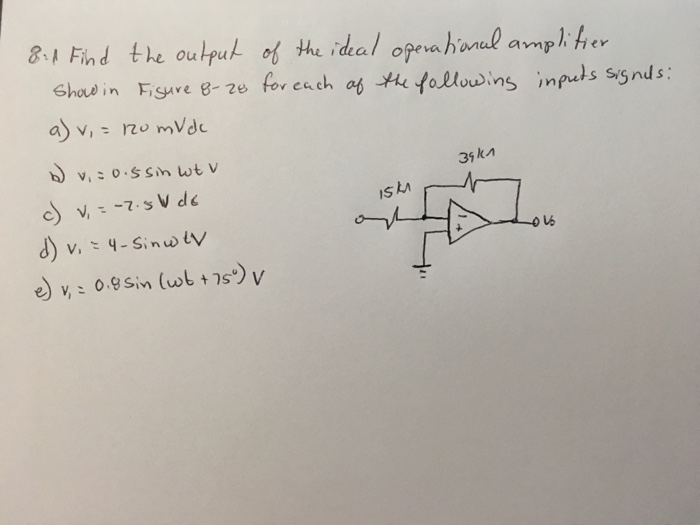 8.1 Find the output of the ideal operational amplifier
Show in Figure 8-28 for each of the following inputs signals:
a) v₁ = 120 mVdc
b) v₁ = 0.5 sin wt V
c) v₁ = -2.5 V dc
d) v₁ = 4 - sin wt V
e) v₁ = 0.8 sin (wt + 75°) V
39kΩ
15kΩ
-
+
Vo